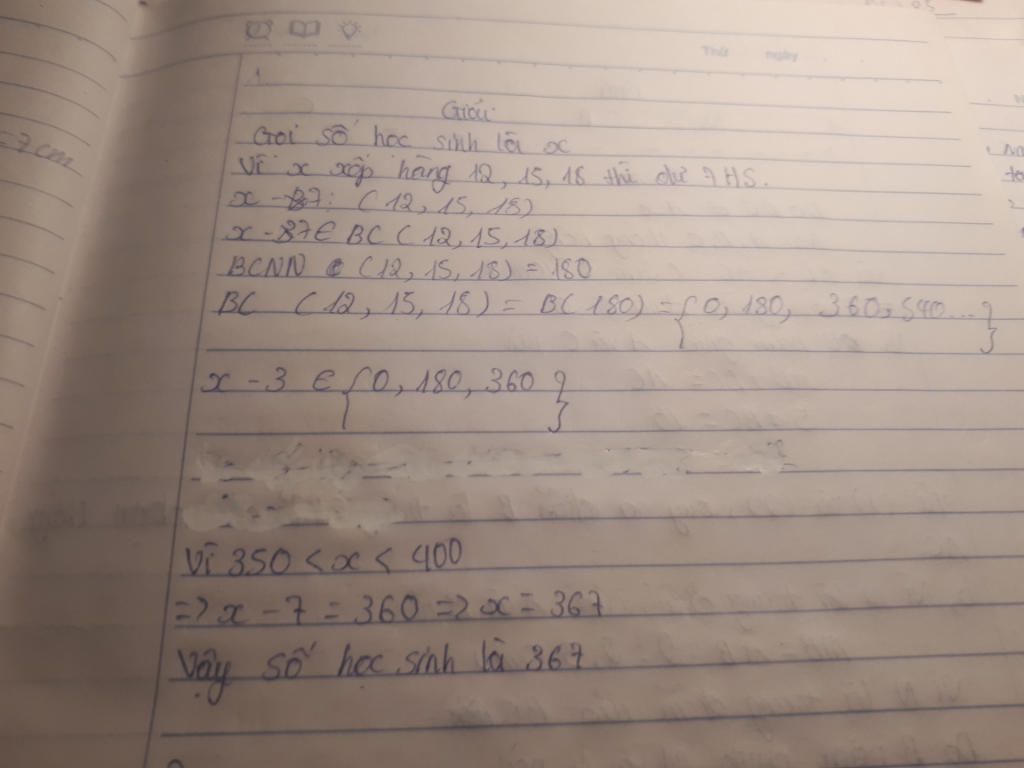 = 7 cm
Thứ ngày
1
Giải
Gọi số học sinh là x
Vì x xếp hàng 12, 15, 18 thì dư 7 HS.
x - 7: (12, 15, 18)
x - 7 ∈ BC (12, 15, 18)
BCNN (12, 15, 18) = 180
BC (12, 15, 18) = B(180) = {0, 180, 360, 540...}
x - 3 ∈ {0, 180, 360}
Vì 350 < x < 400
=> x - 7 = 360 => x = 367
Vậy số học sinh là 367